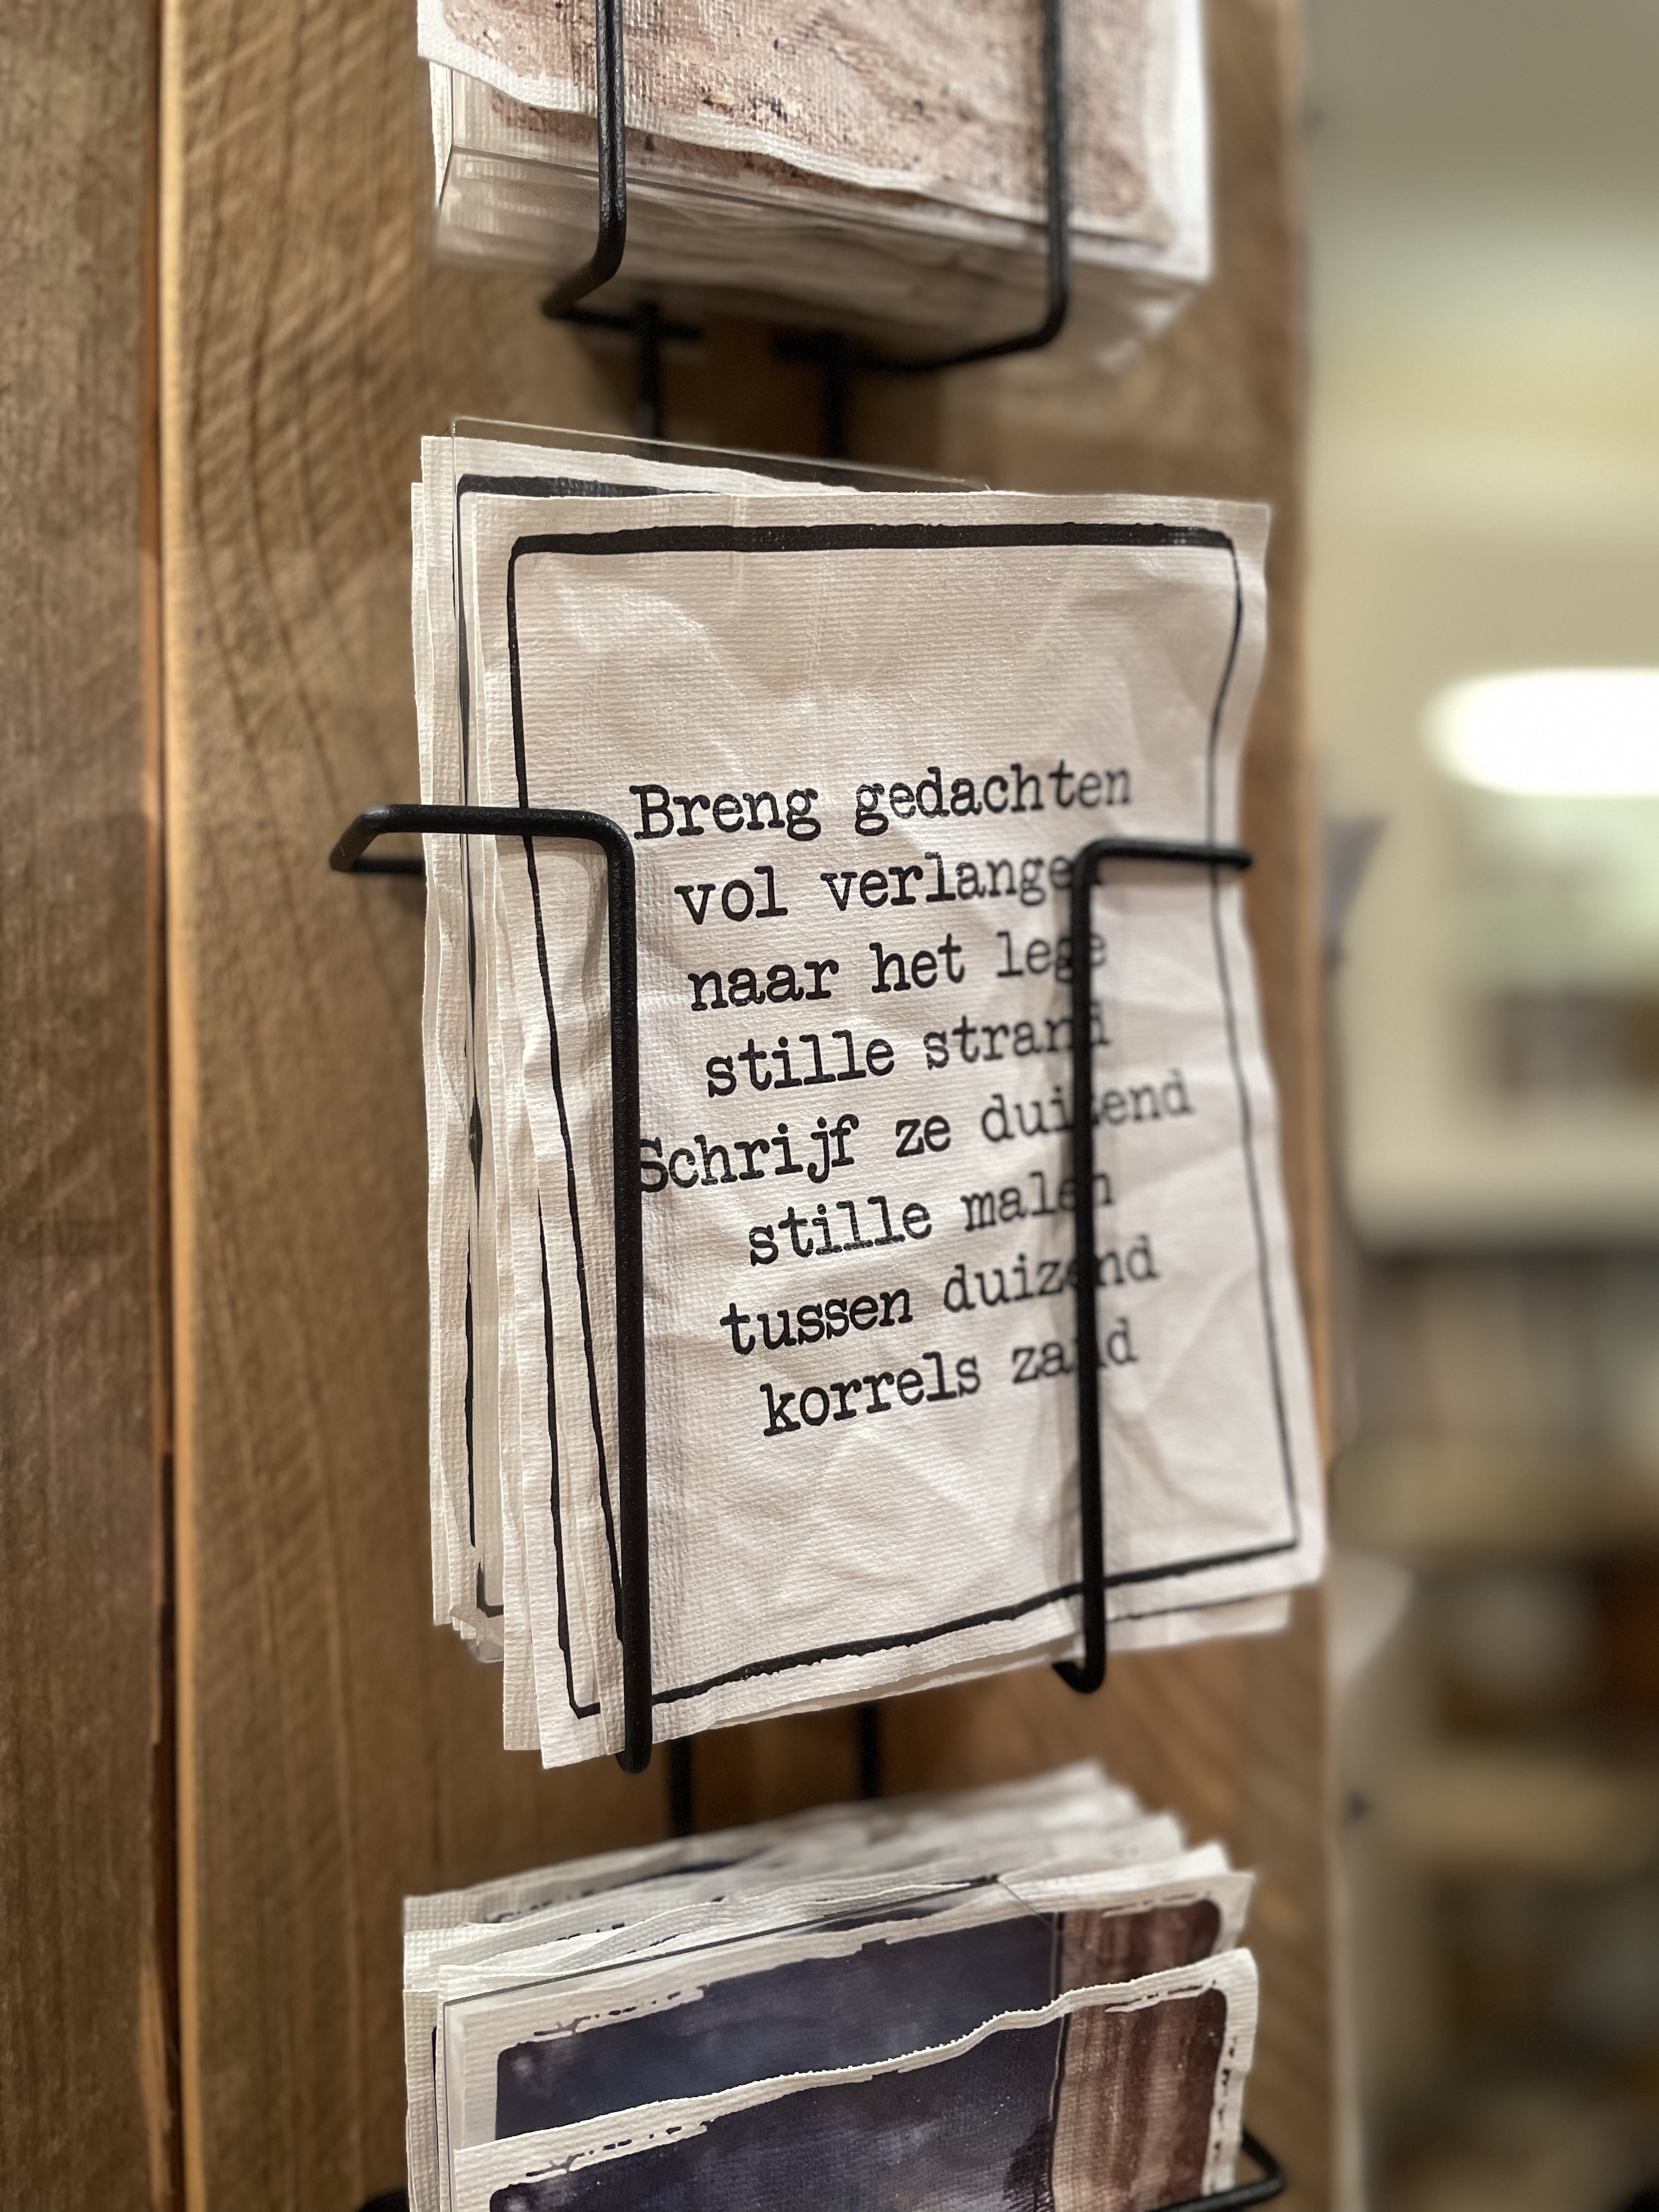 Breng gedachten
vol verlangen
naar het lege
stille strand
Schrijf ze duizend
stille malen
tussen duizend
korrels zand